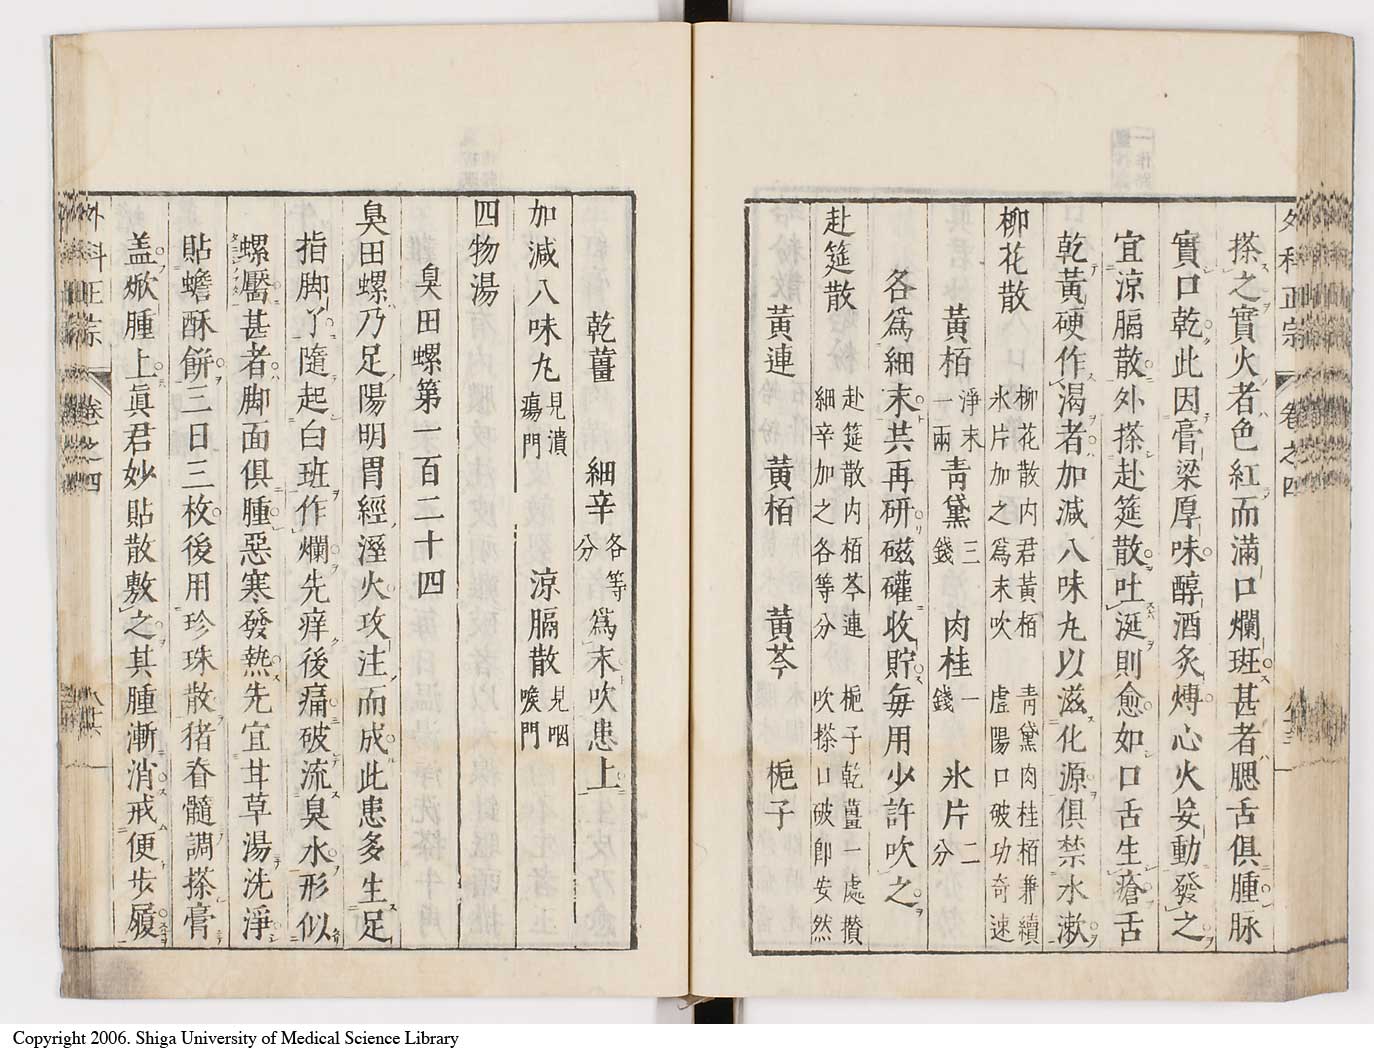 外科正宗 卷之四
搽之實火者色紅而滿口爛斑甚者腮舌俱腫脉
實口乾此因膏梁厚味醇酒炙煿心火妄動發之
宜涼膈散外搽赴筵散吐涎則愈如口舌生瘡舌
乾黃硬作渴者加減八味丸以滋化源俱禁水漱
柳花散 柳花散内君黃栢 靑黛肉桂栢兼續
氷片加之爲末吹 虛陽口破功奇速
黃栢 淨末一兩 靑黛 三錢 肉桂 一錢 氷片 二分
各爲細末共再研磁礶收貯每用少許吹之
赴筵散 赴筵散内栢芩連 梔子乾薑一處攢
細辛加之各等分 吹搽口破卽安然
黃連 黃栢 黃芩 梔子
乾薑 細辛 各等分 爲末吹患上
加減八味丸 見潰瘍門 涼膈散 見咽喉門
四物湯
臭田螺第一百二十四
臭田螺乃足陽明胃經溼火攻注而成此患多生足
指脚丫隨起白斑作爛先痒後痛破流臭水形似
螺靨甚者脚面俱腫惡寒發熱先宜甘草湯洗淨
貼蟾酥餅三日三枚後用珍珠散猪脊髓調搽膏
盖焮腫上眞君妙貼散敷之其腫漸消戒便步履
外科正宗 卷之四
Copyright 2006. Shiga University of Medical Science Library